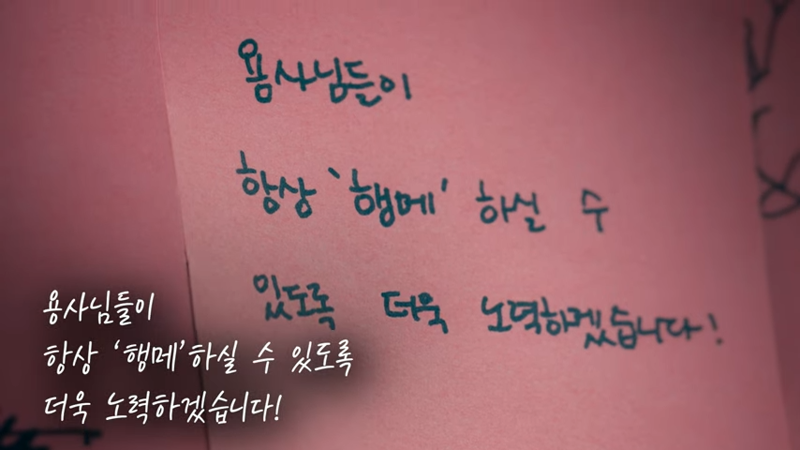 용사님들이
항상 '행메' 하실 수
있도록 더욱 노력하겠습니다!
용사님들이
항상 '행메'하실 수 있도록
더욱 노력하겠습니다!